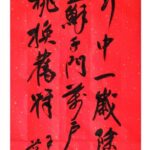 中一歲除
蘇千門萬戶
桃換舊符